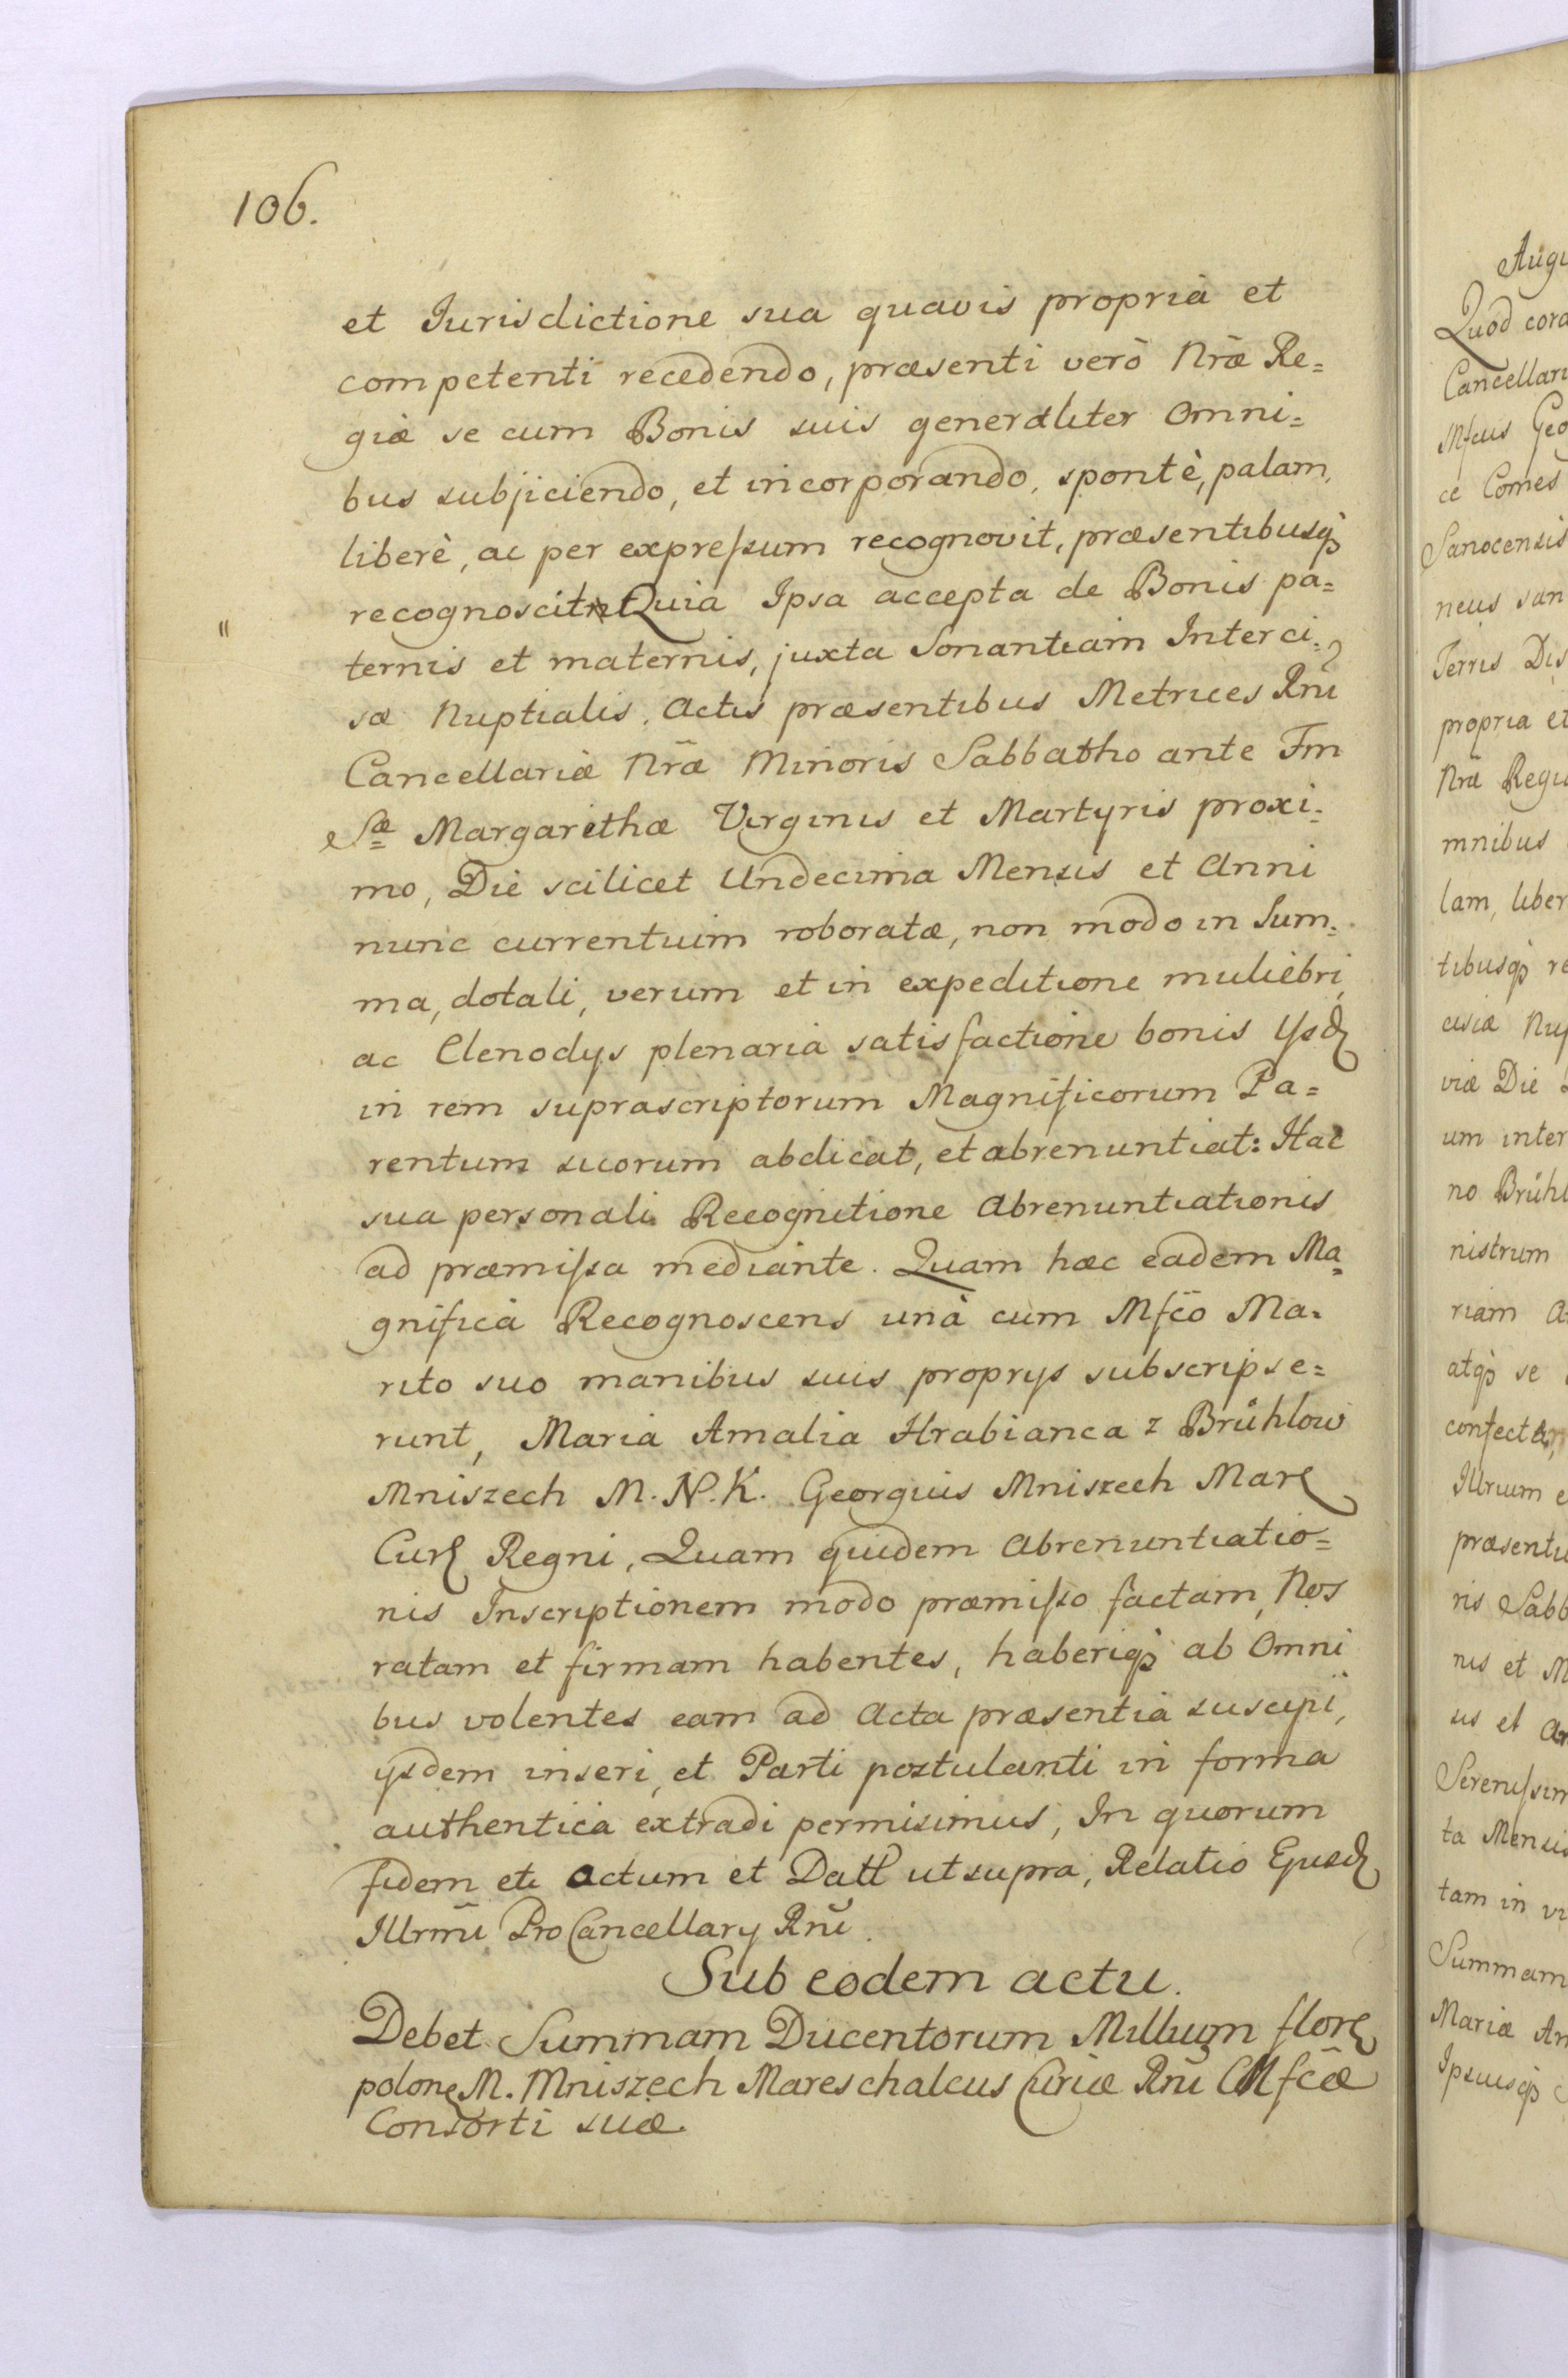 106.
et Jurisdictione sua quavis propria et
competenti recedendo, præsenti verò Nrã Re=
giæ se cum Bonis suis generaliter Omni=
bus subjiciendo, et incorporando, spontè, palam,
liberè, ac per expreſsum recognovit, præsentibusq́
recognoscit Quia Ipsa accepta de Bonis pa=
ternis et maternis, juxta Sonantiam Interci=
sæ Nuptialis, Actis præsentibus Metrices Rñi
Cancellariæ Nræ Minoris Sabbatho ante Fm
Sæ Margarethæ Virginis et Martyris proxi=
mo, Die scilicet Undecima Mensis et Anni
nunc currentium roboratæ, non modo in Sum=
ma, dotali, verum et in expeditione muliebri,
ac Clenodys plenaria satisfactione bonis ysd
in rem suprascriptorum Magnificorum Pa=
rentum suorum abdicat, et abrenuntiat: Hac
sua personali Recognitione Abrenuntiationis
ad præmiſsa mediante. Quam hæc eadem Ma=
gnifica Recognoscens unà cum Mfco Ma=
rito suo manibus suis proprys subscripse=
runt, Maria Amalia Hrabianca z Brühlow
Mniszech M. N. K. Georgius Mniszech Mar
Cur Regni, Quam quidem Abrenuntiatio=
nis Inscriptionem modo præmiſso factam, Nos
ratam et firmam habentes, haberiq́ ab Omni
bus volentes eam ad Acta præsentia suscipi,
ysdem inseri, et Parti postulanti in forma
authentica extradi permisimus, In quorum
fidem etc Actum et Datt ut supra, Relatio Ejusd
Illrmi ProCancellary Rñi.
Sub eodem actu.
Debet Summam Ducentorum Millium flor
polon M. Mniszech Mareschalcus Curiæ Rñi Mfcæ
Consorti suæ.
Augu
Quod cora
Cancellari
Mfcus Geo
ce Comes
Sanocensis
neus san
Terris Dis
propria et
Nræ Regi
mnibus
lam, liber
tibusq́ re
cisiæ Nup
viæ Die
um inter
no Brühl
nistrum
riam A
atq́ se
confecta
Illrium e
præsenti
ris Sabb
nis et M
us et An
Sereniſsim
ta Mensis
tam in vi
Summam
Mariæ Am
Ipsiusq́